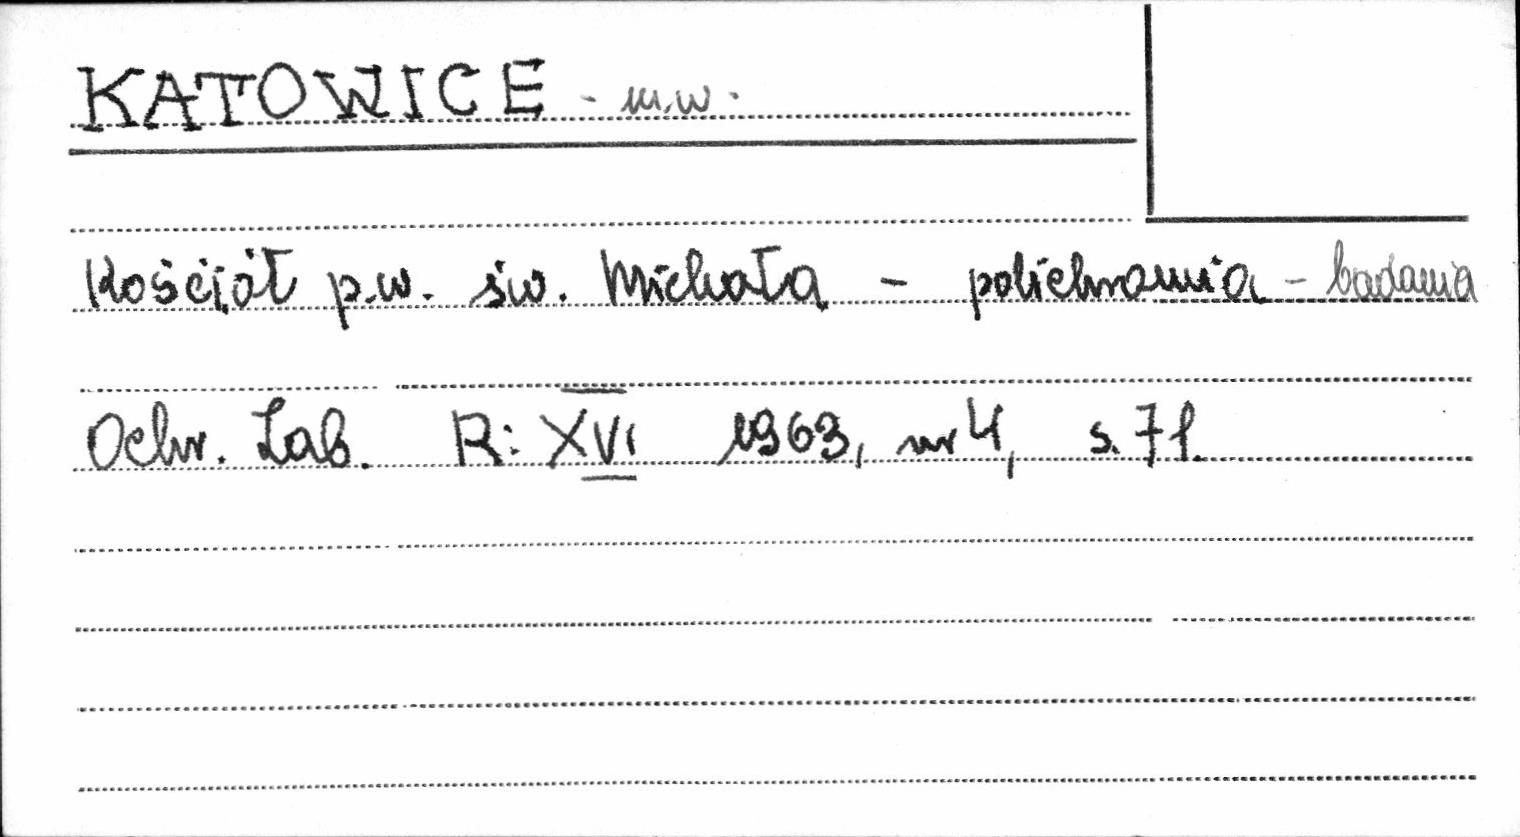 KATOWICE - m.w.
Kościół p.w. św. Michała - polichromia - badania
Ochr. Zab. R: XVI 1963, nr 4, s. 71.